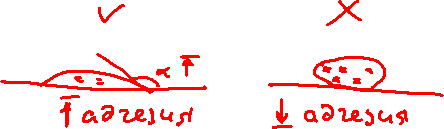 ✓ ✗
α ↑
↑ адгезия ↓ адгезия